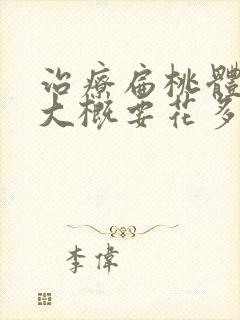 治療扁桃體
大概要花多
李偉